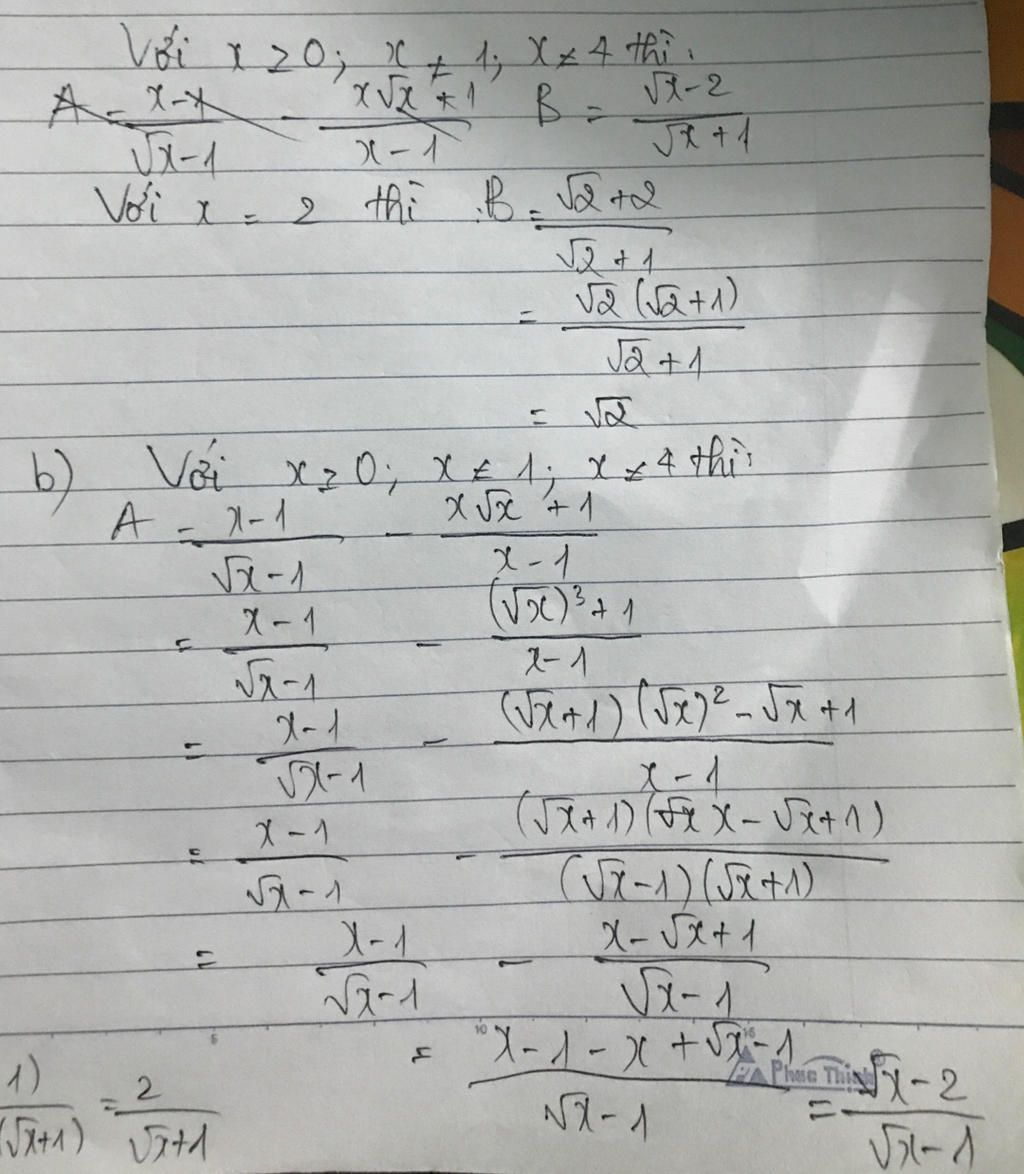 Với x ≥ 0; x ≠ 1; x ≠ 4 thì:
A = (x-1)/(√x-1) - (x√x+1)/(x-1) B = (√x-2)/(√x+1)
Với x = 2 thì : B = (√2+2)/(√2+1)
= (√2(√2+1))/(√2+1)
= √2
b) Với x ≥ 0; x ≠ 1; x ≠ 4 thì:
A = (x-1)/(√x-1) - (x√x+1)/(x-1)
= (x-1)/(√x-1) - ((√x)³+1)/(x-1)
= (x-1)/(√x-1) - ((√x+1)(√x)²-√x+1)/(x-1)
= (x-1)/(√x-1) - ((√x+1)(x-√x+1))/((√x-1)(√x+1))
= (x-1)/(√x-1) - (x-√x+1)/(√x-1)
5 10 15
= (x-1-x+√x-1)/(√x-1) = (√x-2)/(√x-1)
Phuc Thinh
1)/(√x+1) = 2/(√x+1)